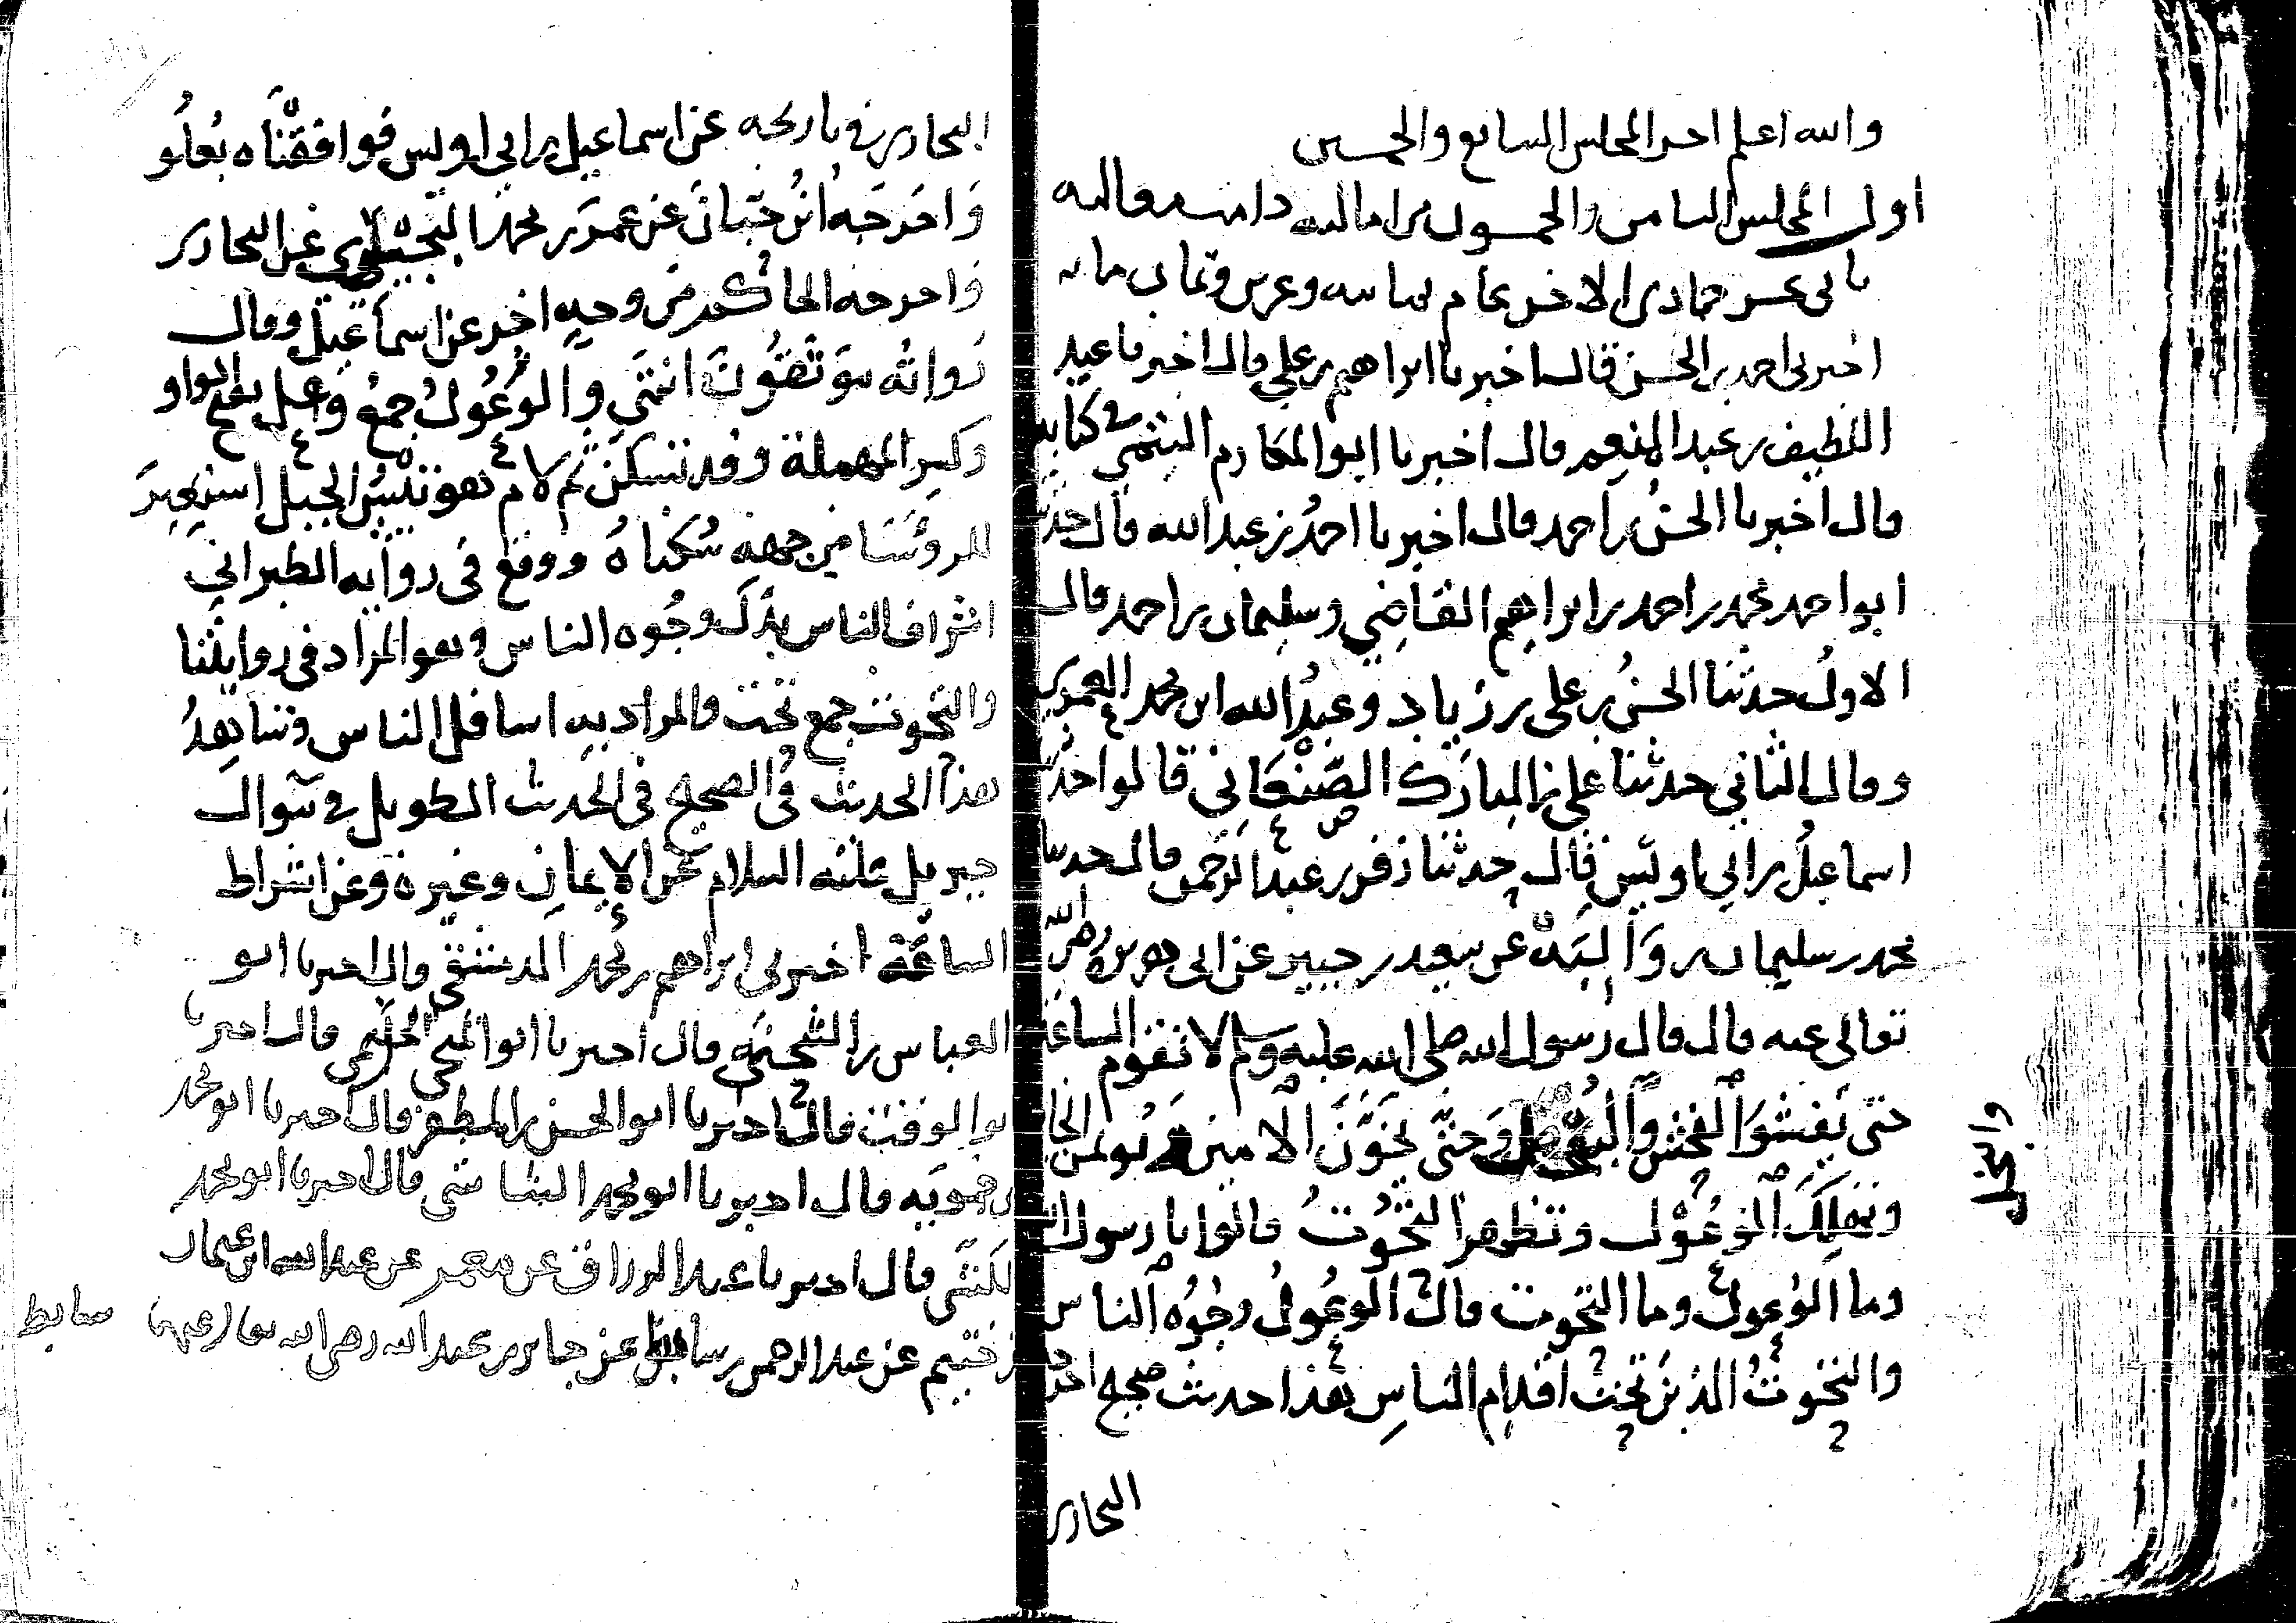 والله اعلم اخر المجلس السابع والخمسين
اول المجلس الثامن والخمسون من اماليه
ثاني عشر جمادى الاخر عام وعشرين وثماني مائه
اخبرني احمد بن الحسن قال اخبرنا ابراهيم بن علي قال اخبرنا عبد
اللطيف بن عبد المنعم قال اخبرنا ابو المكارم التيمي في كتابه
قال اخبرنا الحسن بن احمد قال اخبرنا احمد بن عبد الله قال حدثنا
ابو احمد محمد بن احمد بن ابراهيم القاضي وسليمان بن احمد قال
الاول حدثنا الحسن بن علي بن زياد وعبد الله ابن محمد العمري
وقال الثاني حدثنا علي بن المبارك الصنعاني قالوا حدثنا
اسماعيل بن ابي اويس قال حدثنا زفر بن عبد الرحمن قال حدثنا
محمد بن سليمان بن والبة عن سعيد بن جبير عن ابي هريرة رضي الله
تعالى عنه قال قال رسول الله صلى الله عليه وسلم لا تقوم الساعة
حتى يفشوا الفحش وحتى يخون الامين ويوتمن الخاين
وتهلك الوعول وتظهر التحوت قالوا يا رسول الله
وما الوعول وما التحوت قال الوعول وجوه الناس
والتحوت الذين تحت اقدام الناس هذا حديث صحيح اخرجه
البخاري
والبخل
البخاري في تاريخه عن اسماعيل بن ابي اويس فوافقناه بعلو
واخرجه ابن حبان عن عمر بن محمد البجيري عن البخاري
واخرجه الحاكم من وجه اخر عن اسماعيل وقال
رواته موثقون انتهى والوعول جمع وعل بفتح الواو
وكسر المهملة وقد تسكن ثم لام هو تيس الجبل استعير
للرؤسا من جهة سكناه ووقع في رواية الطبراني
اشراف الناس بدل وجوه الناس وهو المراد في روايتنا
والتحوت جمع تحت والمراد به اسافل الناس وشاهد
هذا الحديث في الصحيح في الحديث الطويل في سوال
جبريل عليه السلام عن الايمان وغيره وعن اشراط
الساعة اخبرني ابراهيم بن محمد الدمشقي قال اخبرنا ابو
العباس بن الشحنة قال اخبرنا ابو المنجي الحريمي قال اخبرنا
ابو الوقت قال اخبرنا ابو الحسن بن المظفر قال اخبرنا ابو محمد
بن حمويه قال اخبرنا ابو محمد الشاشي قال اخبرنا ابو محمد
الكشي قال اخبرنا عبد الرزاق عن معمر عن عبد الله ابن عثمان
بن خثيم عن عبد الرحمن بن سابط عن جابر بن عبد الله رضي الله تعالى عنهما
سابط